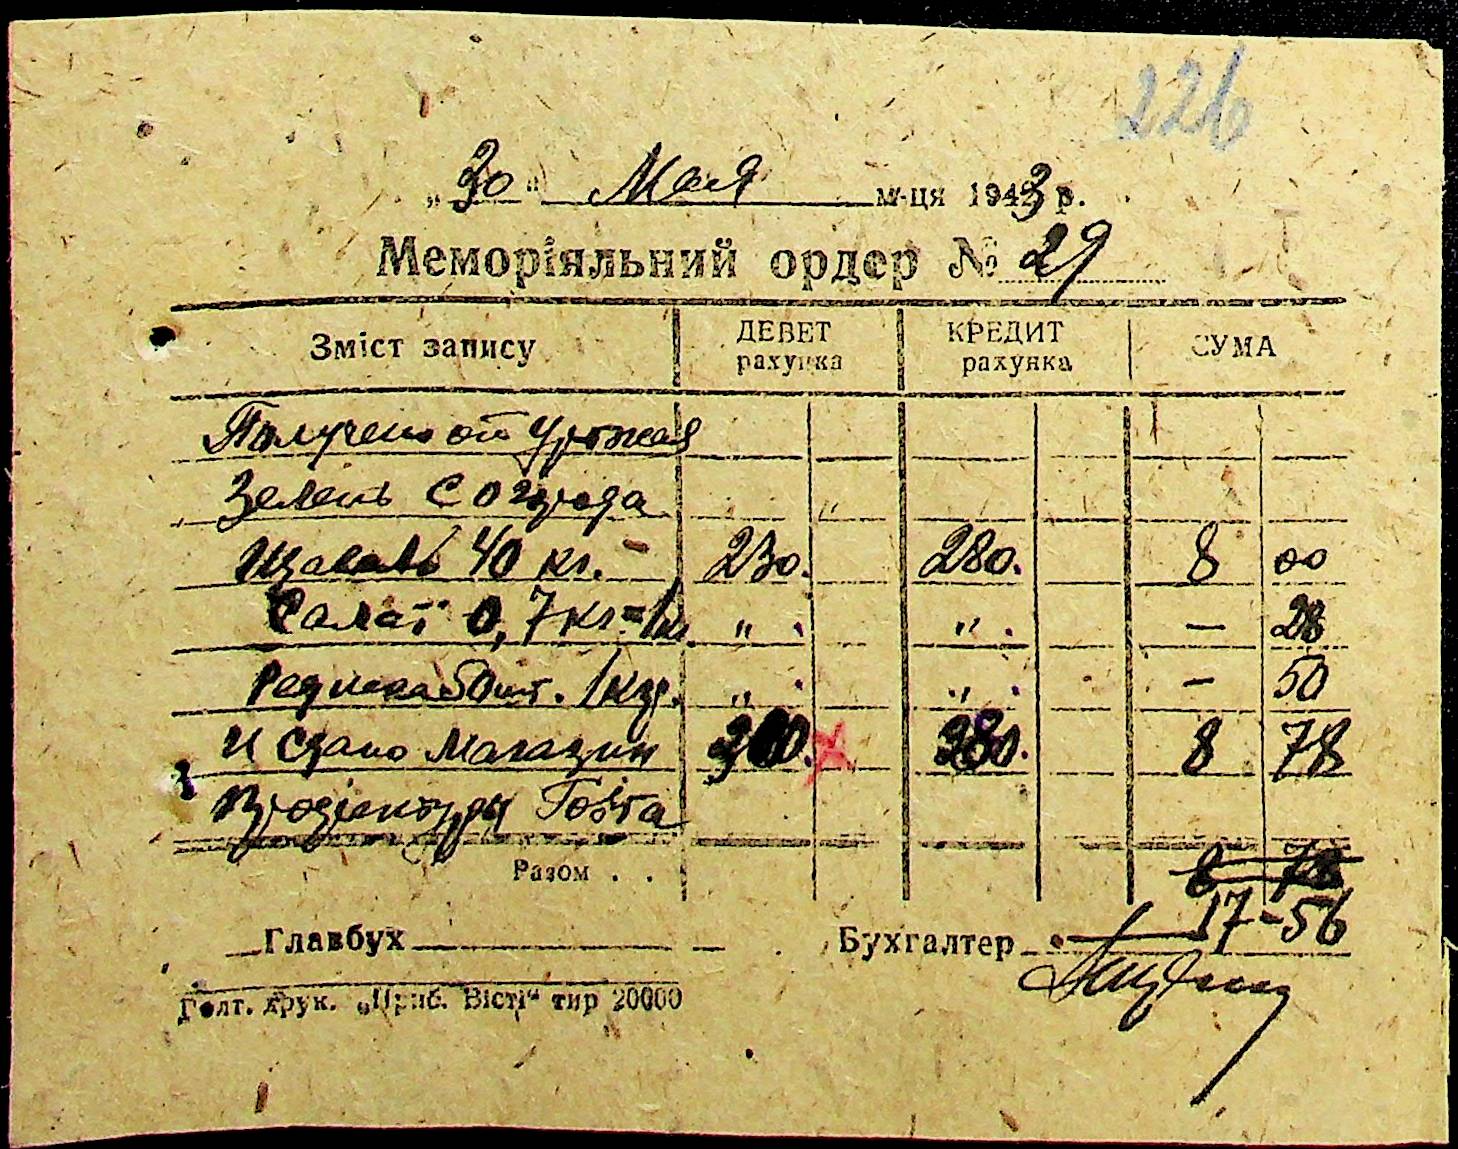 226
„30“ Мая м-ця 1943 р.
Меморіяльний ордер № 29
Зміст запису ДЕБЕТ рахунка КРЕДИТ рахунка СУМА
Получено от урожая
Зелень с огорода
Щавель 40 кг. 230. 280. 8 00
Салат 0,7 кг = 1 кг. „ . „ . — 28
Редиска 50 шт. 1 кг. „ . „ . — 50
И сдано Магазин 280. 8 78
Гоѣта
Разом . . 8 78
17-56
Главбух Бухгалтер
Голт. друк. „Приб. Вісті“ тир 20000